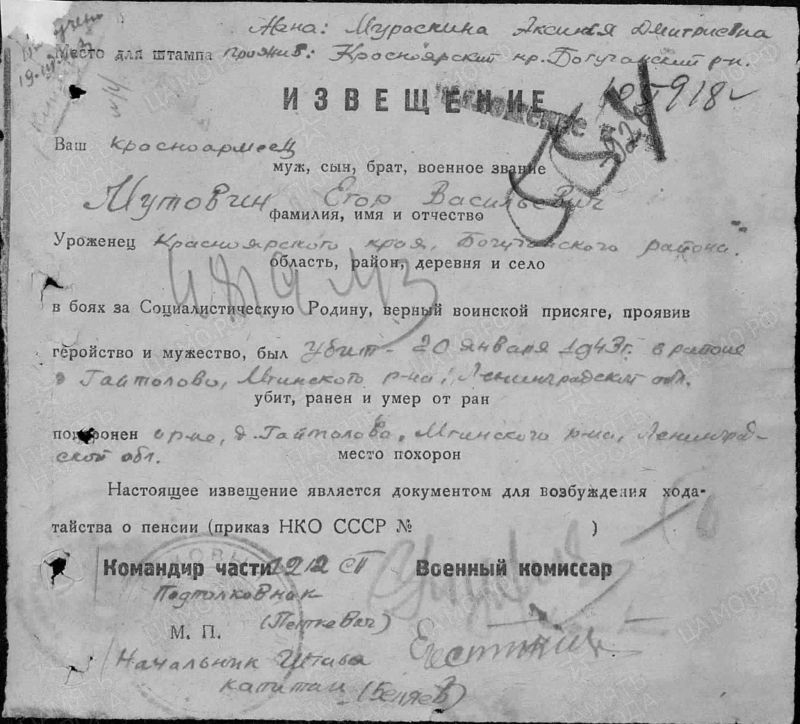 Жена: Мураскина Аксинья Дмитриевна
Место для штампа прожив: Красноярский кр. Богучанский р-н.
ИЗВЕЩЕНИЕ
Ваш красноармеец
муж, сын, брат, военное звание
Мутовин Егор Васильевич
фамилия, имя и отчество
Уроженец Красноярского края, Богучанского района.
область, район, деревня и село
в боях за Социалистическую Родину, верный воинской присяге, проявив
геройство и мужество, был убит - 20 января 1943 г. в районе
д Гайтолово, Мгинского р-на, Ленинградской обл.
убит, ранен и умер от ран
похоронен р-не, д. Гайтолово, Мгинского р-на, Ленинград-
ской обл.
место похорон
Настоящее извещение является документом для возбуждения хода-
тайства о пенсии (приказ НКО СССР № )
Командир части 1212 СП Военный комиссар
Подполковник
(Петкевич)
М. П.
Начальник Штаба
капитан (Беляев)